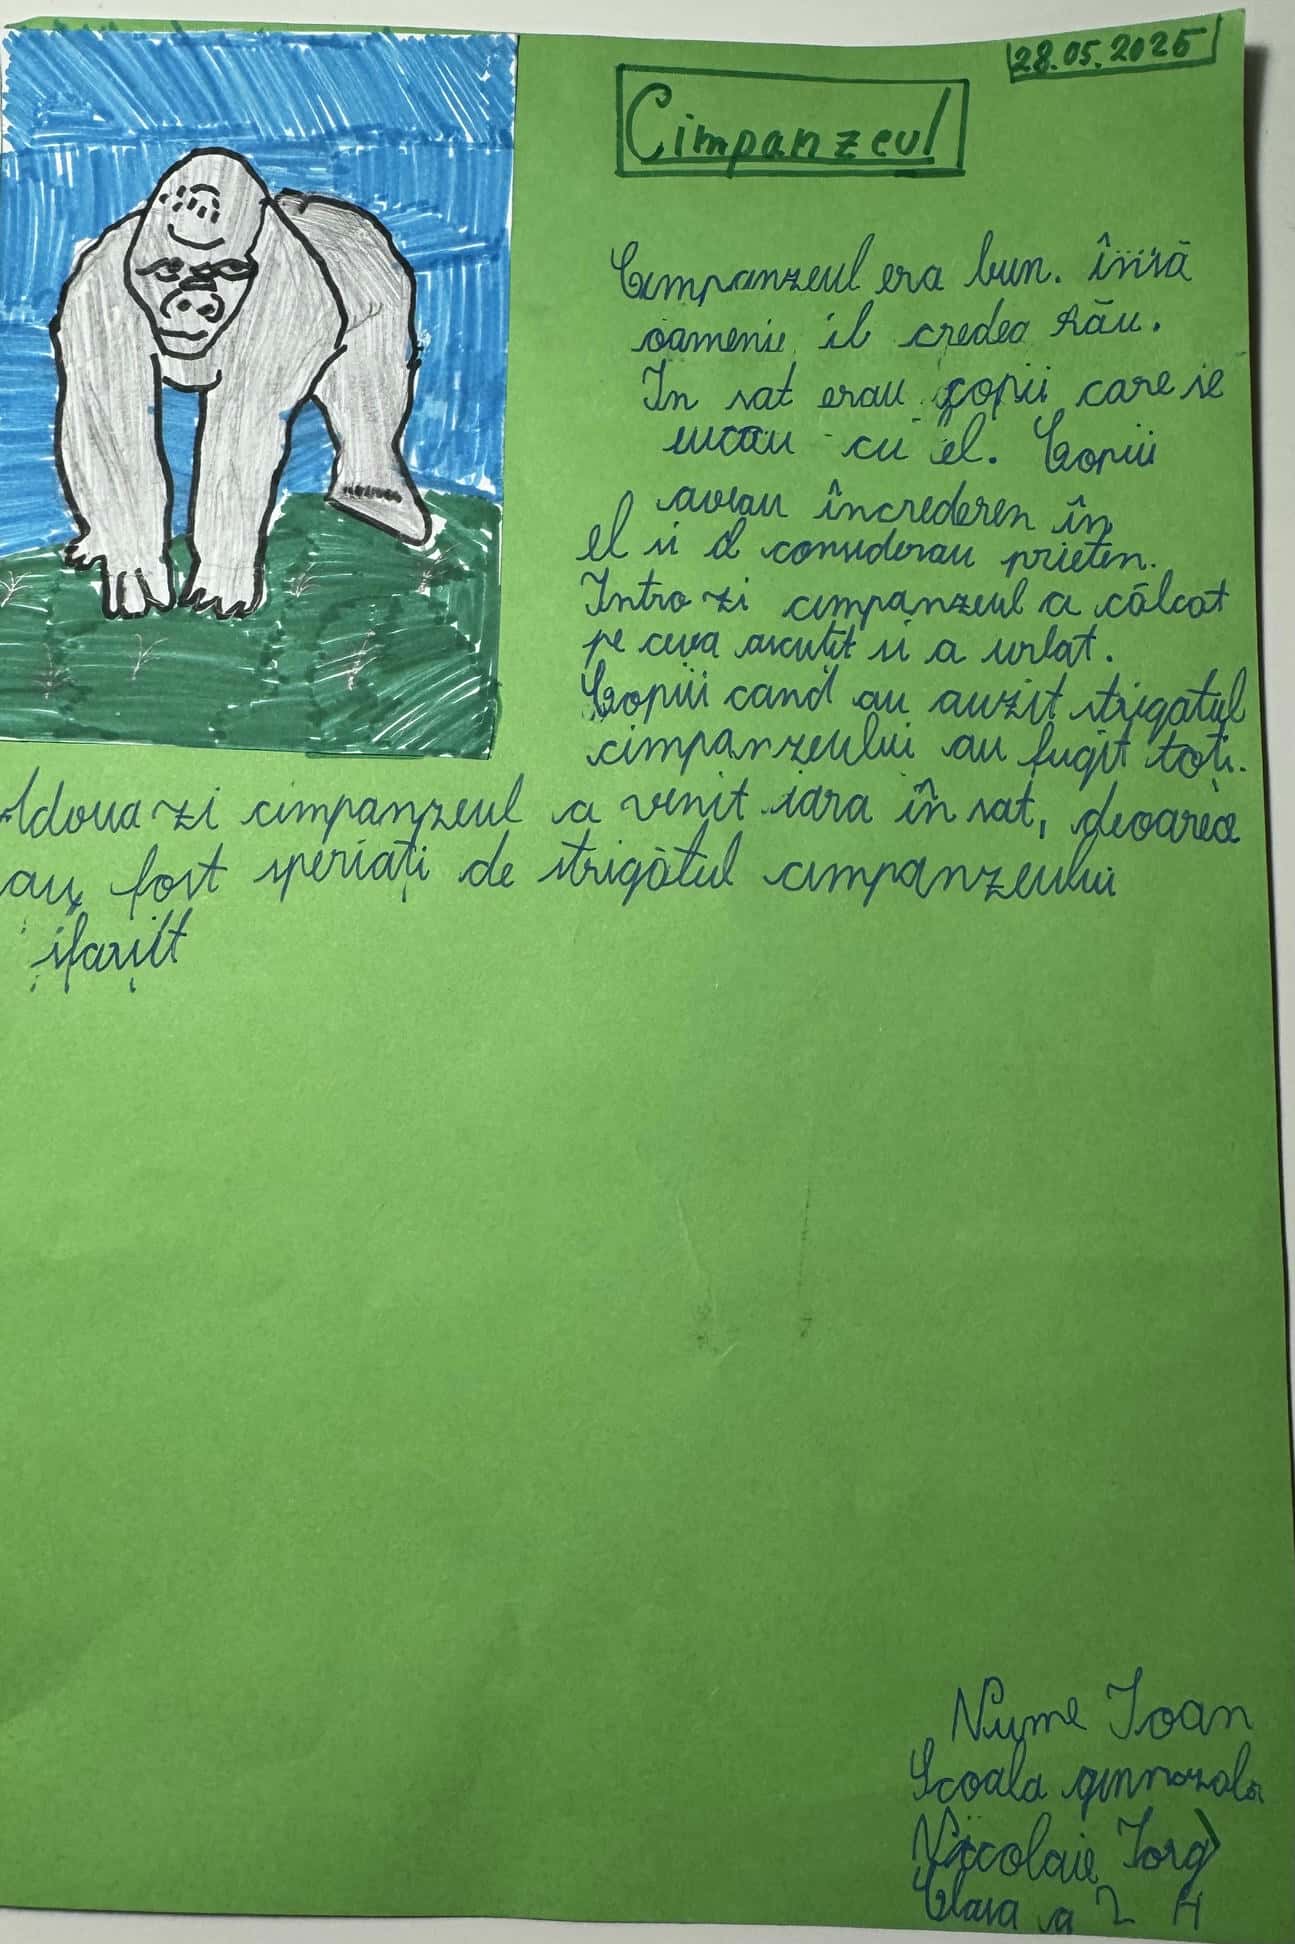 28.05.2025
Cimpanzeul
Cimpanzeul era bun. însă
oamenie il credea rău.
In sat erau copii care se
jucau cu el. Copiii
aveau încrederen în
el si il considerau prieten.
Intro zi cimpanzeul a călcat
pe ceva ascutit si a urlat.
Copiii cand au auzit strigatul
cimpanzeului au fugit toți.
Adoua zi cimpanzeul a venit iara în sat, deoarece
au fost speriați de strigătul cimpanzeului
sfarsit
Nume Ioan
Scoala gimnazala
Nicolaie Iorg
Clasa a 2 H